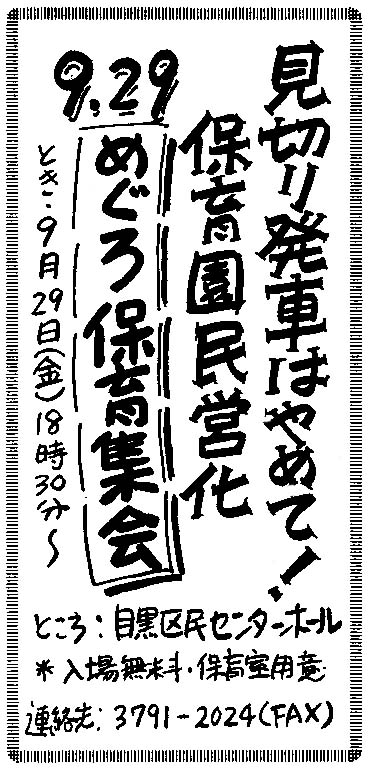 見切り発車はやめて!
保育園民営化
9.29
めぐろ保育集会
とき:9月29日(金)18時30分〜
ところ:目黒区民センターホール
*入場無料・保育室用意
連絡先:3791-2024(FAX)